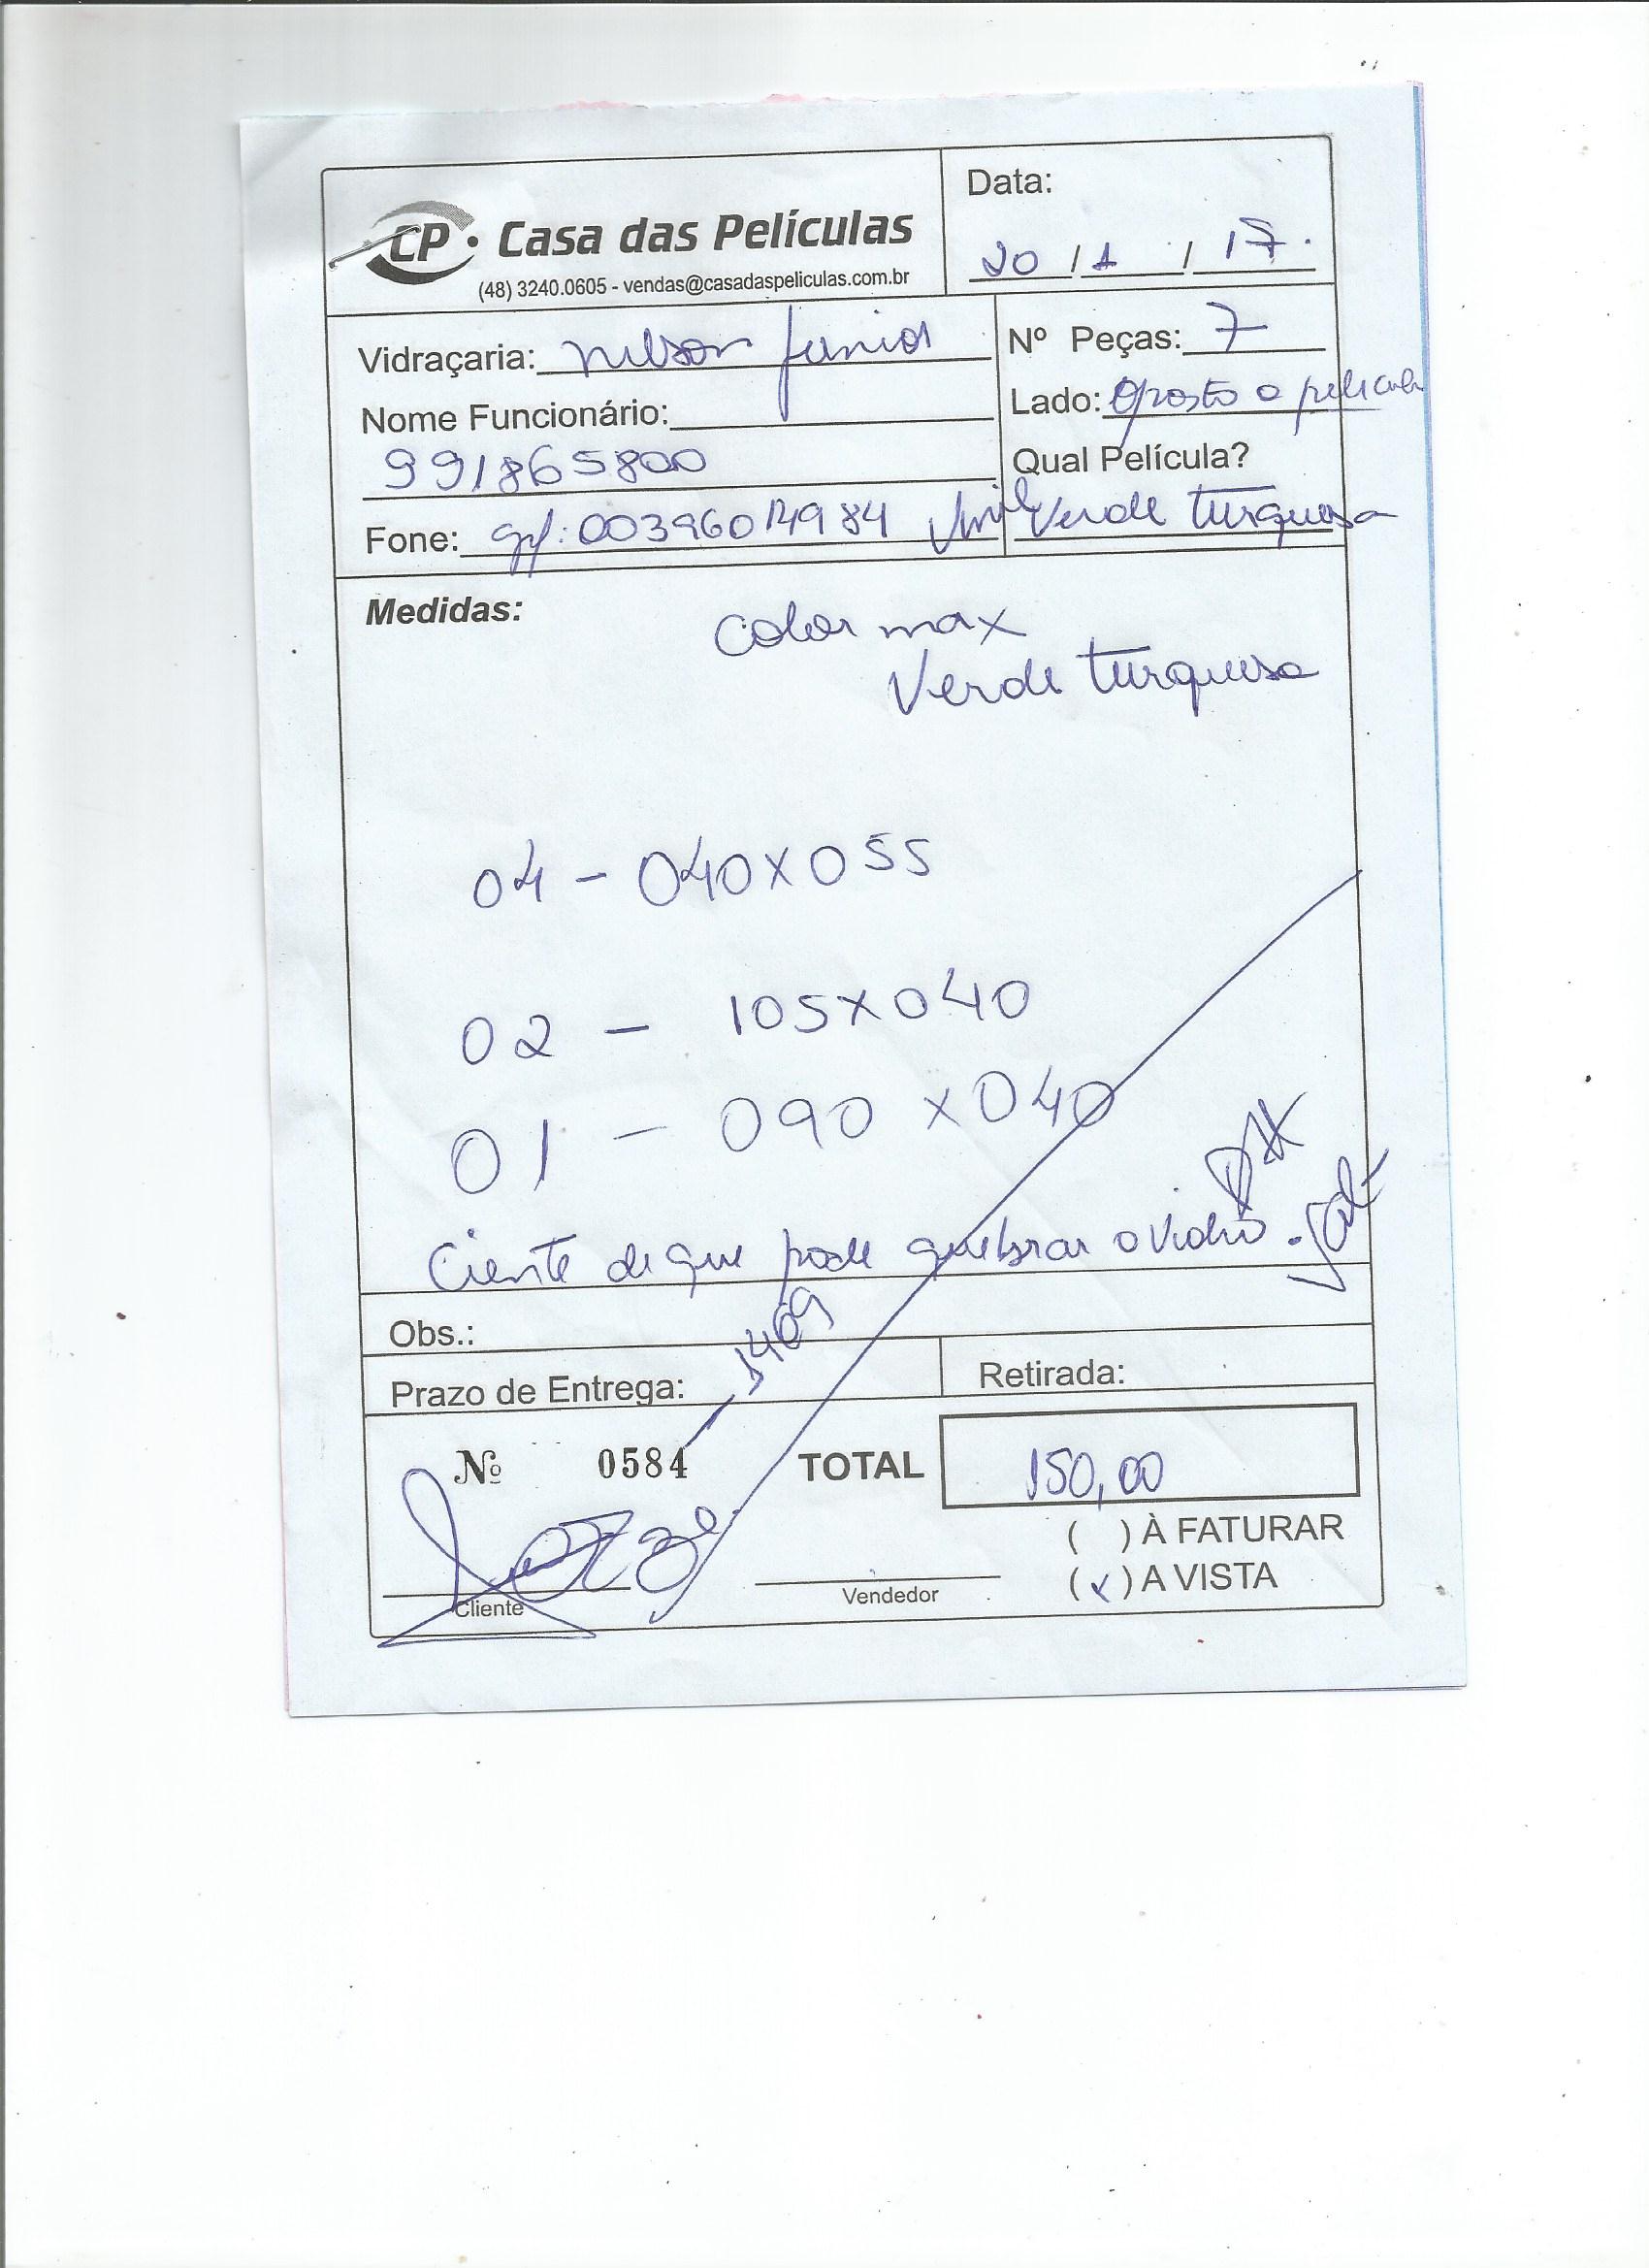 CP • Casa das Películas
(48) 3240.0605 - vendas@casadaspeliculas.com.br
Data:
20 / 1 / 17.
Vidraçaria: nelson junior
Nome Funcionário:
991865800
Fone: 00396014984
Nº Peças: 7
Lado: Oposto a pelicula
Qual Película?
Verde turquesa
Medidas:
Color max
Verde turquesa
04 - 040x055
02 - 105x040
01 - 090x040
Ciente de que pode quebrar o vidro.
Obs.:
Prazo de Entrega:
Retirada:
Nº 0584
1469
TOTAL 150,00
( ) À FATURAR
(x) A VISTA
Cliente
Vendedor